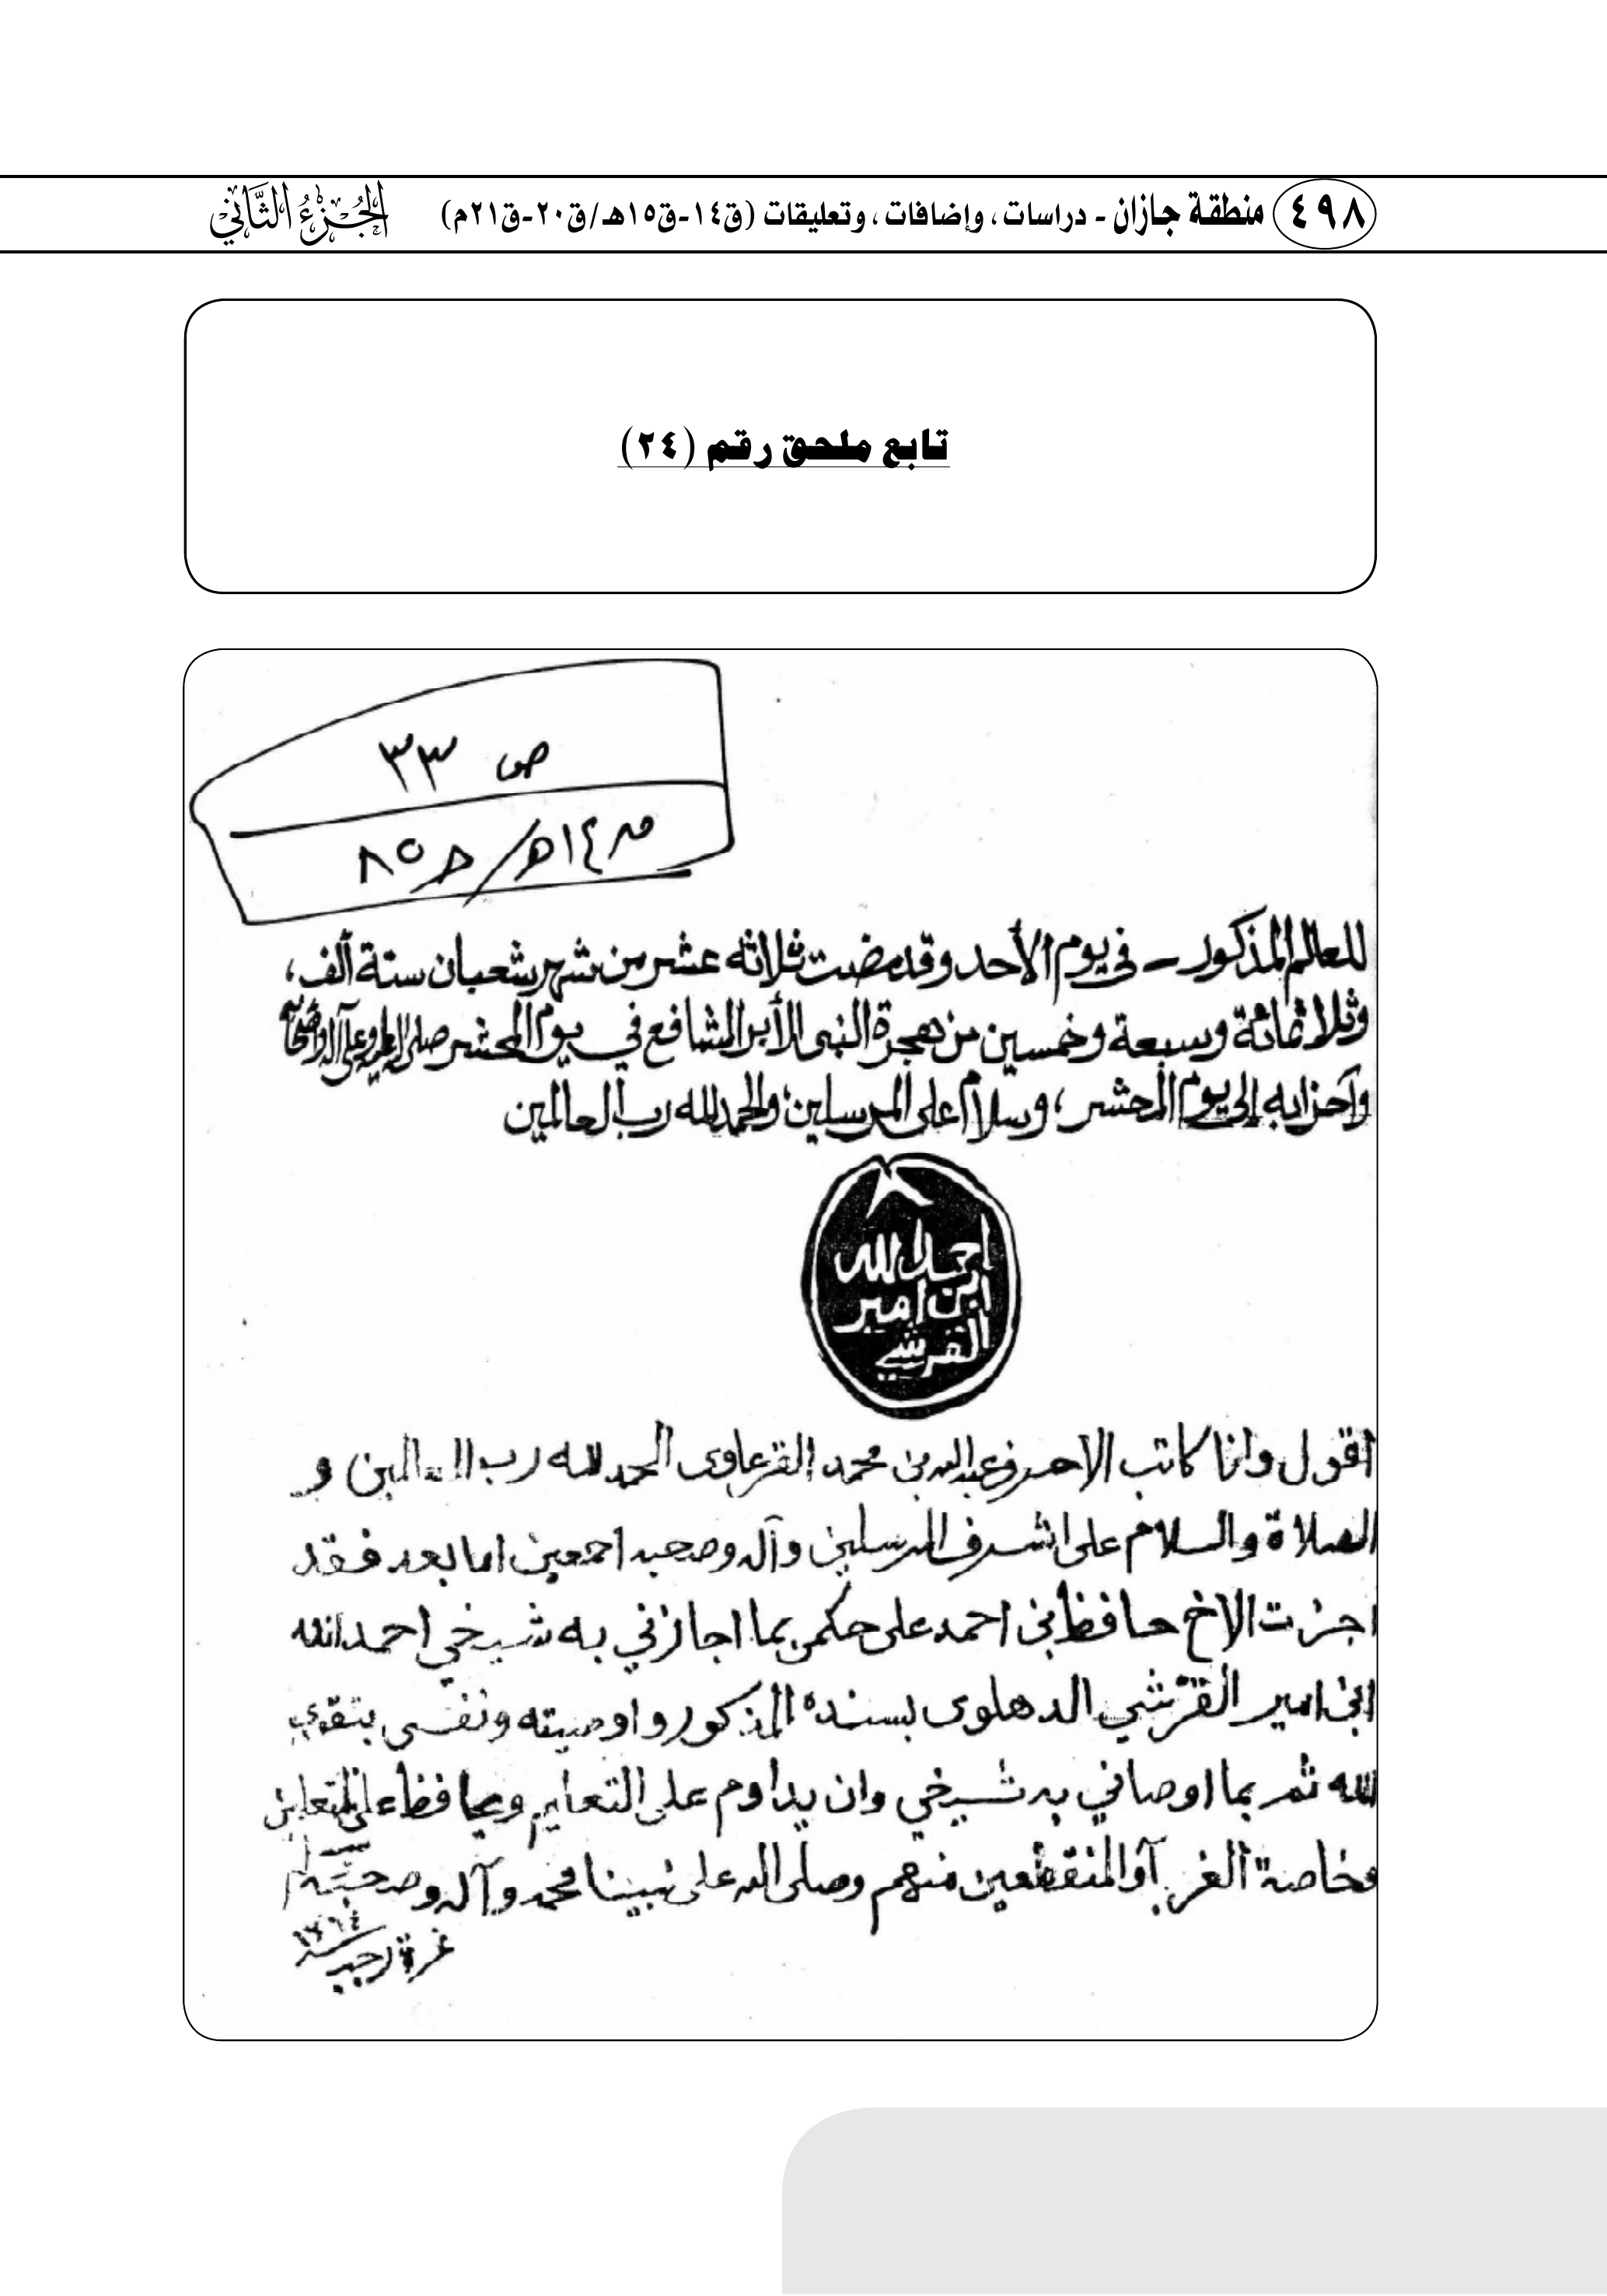 ٤٩٨ منطقة جازان - دراسات، وإضافات، وتعليقات (ق١٤-ق١٥هـ/ق٢٠-ق٢١م) الجُزءُ الثَّاني
تابع ملحق رقم (٢٤)
ص ٣٣
للعالم المذكور - في يوم الأحد وقد مضت ثلاثة عشر من شهر شعبان سنة ألف،
وثلاثمائة وسبعة وخمسين من هجرة النبي الأبر الشافع في يوم المحشر صلى الله عليه وعلى آله وأصحابه
وأحزابه إلى يوم المحشر، وسلام على المرسلين، والحمد لله رب العالمين
احمد الله
ابن امير
القرشي
اقول وانا كاتب الاحرف عبد الله بن محمد القرعاوى الحمد لله رب العالمين و
الصلاة والسلام على اشرف المرسلين وآله وصحبه اجمعين اما بعد فقد
اجزت الاخ حافظ بن احمد على حكمى بما اجازني به شيخي احمد الله
ابن امير القرشي الدهلوى بسنده المذكور واوصيته ونفسى بتقوى
الله ثم بما اوصاني به شيخي وان يداوم على التعليم ويحافظ على المتعلمين
وخاصة الغرباء والمنقطعين منهم وصلى الله على نبينا محمد وآله وصحبه وسلم
غرة رجب ١٣٦٤